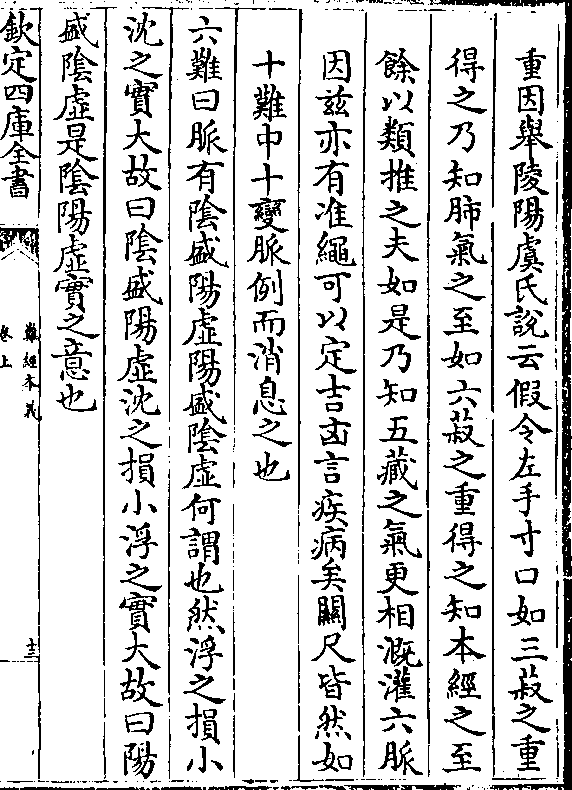 重因舉陵陽虞氏說云假令左手寸口如三菽之重
得之乃知肺氣之至如六菽之重得之知本經之至
餘以類推之夫如是乃知五藏之氣更相溉灌六脈
因兹亦有准繩可以定吉凶言疾病矣關尺皆然如
十難中十變脈例而消息之也
六難曰脈有陰盛陽虛陽盛陰虛何謂也然浮之損小
沈之實大故曰陰盛陽虛沈之損小浮之實大故曰陽
盛陰虛是陰陽虛實之意也
欽定四庫全書
難經本義
卷上
十三